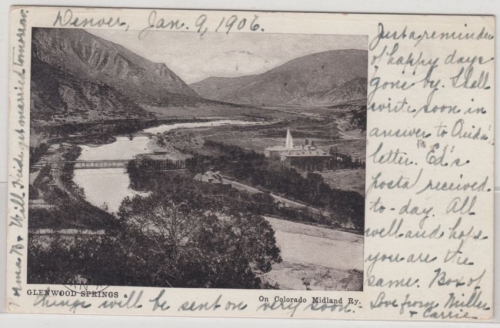 Denver, Jan. 9, 1906.
Just a reminder
of happy days
gone by. Shall
write soon in
answer to Ouida's
letter. Ed's
postal received
to-day. All
well and hope
you are the
same. Box of
things will be sent on very soon.
Love from Millie
+ Carrie.
& Will Fride get married tomorrow.
GLENWOOD SPRINGS
On Colorado Midland Ry.